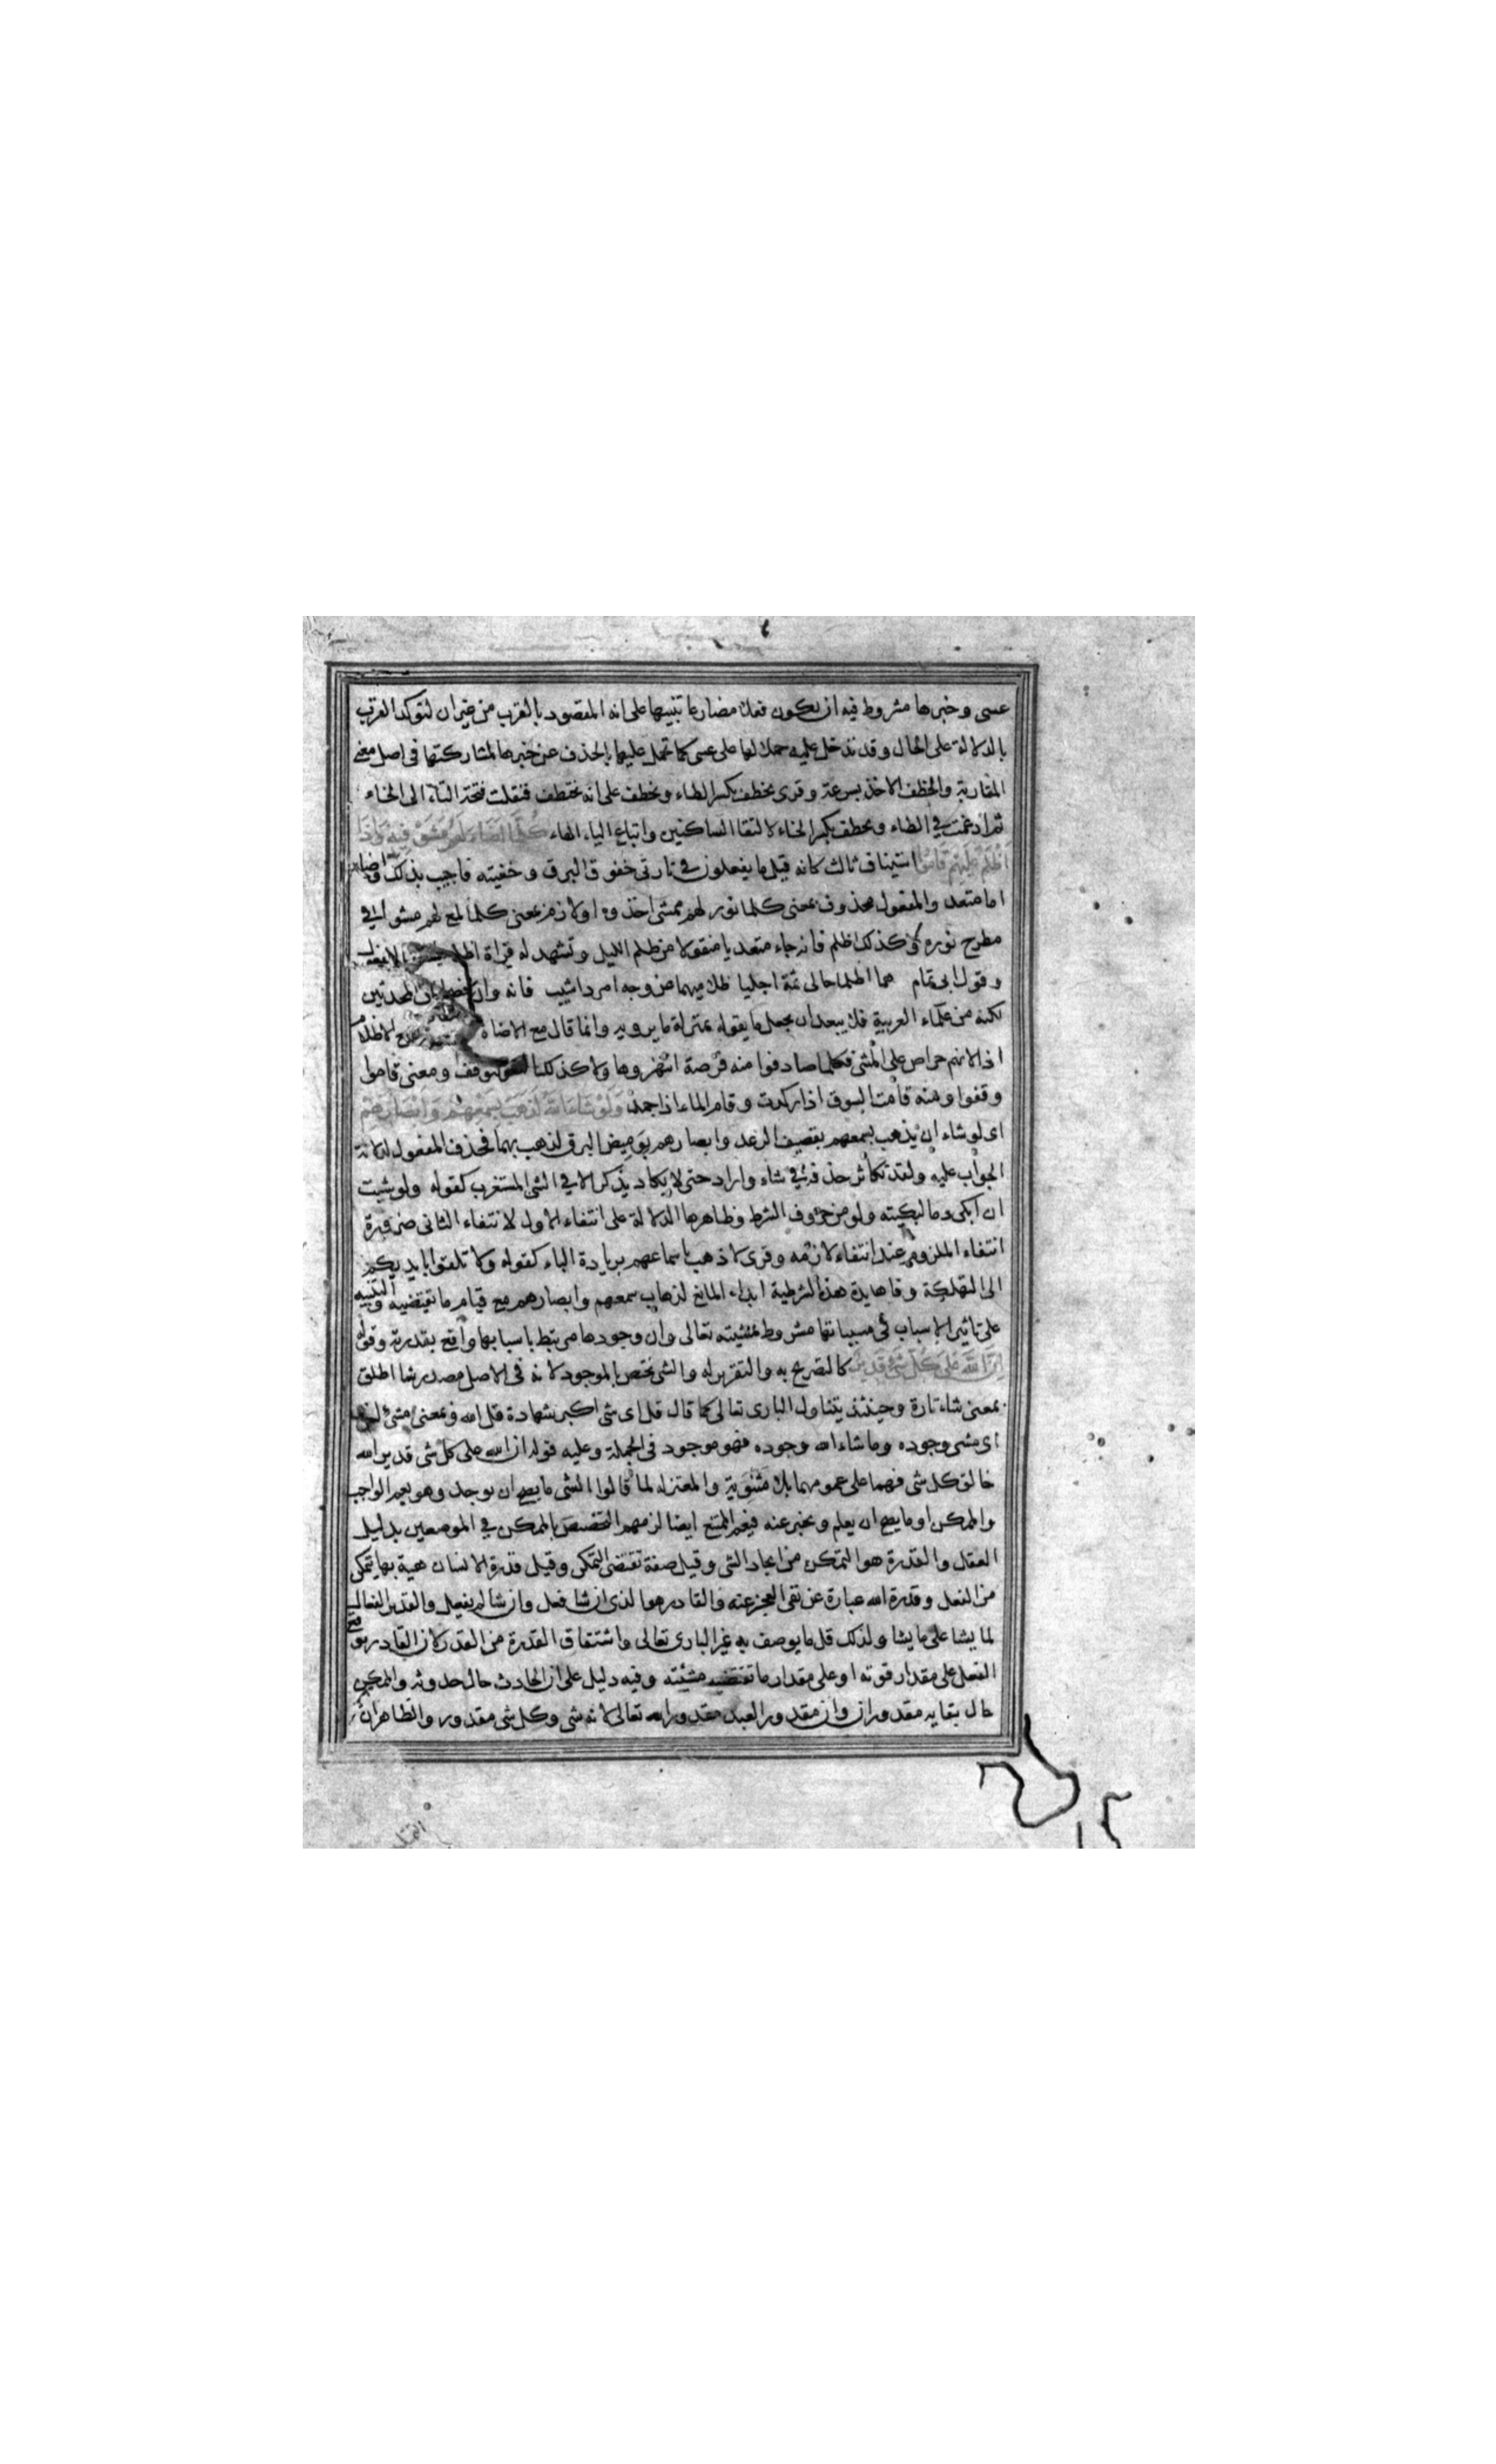 عسى وخبرها مشروط فيه ان يكون فعلا مضارعا تنبيها على انه المقصود بالقرب من غير ان لتوكد القرب
بالدلالة على الحال وقد تدخل عليه حملا لها على عسى كما تحمل عليها بالحذف عن خبرها لمشاركتها في اصل معنى
المقاربة والخطف الاخذ بسرعة وقرى يخطف بكسر الطاء ويخطف على انه يختطف فنقلت فتحة التاء الى الخاء
ثم ادغمت في الطاء ويخطف بكسر الخاء لالتقا الساكنين واتباع الياء الهاء كُلَّمَا اَضَاءَ لَهُمْ مَشَوْا فِيهِ وَاِذَا
اَظْلَمَ عَلَيْهِمْ قَامُوا استيناف ثالث كانه قيل ما يفعلون في تارتى خفوق البرق وخفيته فاجيب بذلك واضاء
اما متعد والمفعول محذوف بمعنى كلما نور لهم ممشى اخذوه او لازم بمعنى كلما لمع لهم مشوا في
مطرح نوره وكذلك اظلم فانه جاء متعديا منقولا من ظلم الليل وتشهد له قراة اظلم
وقول ابى تمام هما اظلما حالى ثمة اجليا ظلاميهما عن وجه امرد اشيب فانه وان كان من المحدثين
لكنه من علماء العربية فلا يبعد ان يجعل ما يقوله بمنزلة ما يرويه وانما قال مع الاضاة كلما ومع الاظلام
اذا لانهم حراص على المشى فكلما صادفوا منه فرصة انتهزوها ولا كذلك التوقف ومعنى قاموا
وقفوا ومنه قامت السوق اذا ركدت وقام الماء اذا جمد وَلَوْ شَاءَ اللّٰهُ لَذَهَبَ بِسَمْعِهِمْ وَاَبْصَارِهِمْ
اى لو شاء ان يذهب بسمعهم بقصيف الرعد وابصارهم بوميض البرق لذهب بهما فحذف المفعول لدلالة
الجواب عليه ولقد تكاثر حذفه في شاء واراد حتى لا يكاد يذكر الا في الشى المستغرب كقوله ولو شيت
ان ابكى دما لبكيته ولو من حروف الشرط وظاهرها الدلالة على انتفاء الاول لانتفاء الثانى ضرورة
انتفاء الملزوم عند انتفاء لازمه وقرى لاذهب باسماعهم بزيادة الباء كقوله ولا تلقوا بايديكم
الى التهلكة وفايدة هذه الشرطية ابداء المانع لذهاب سمعهم وابصارهم مع قيام ما يقتضيه والتنبيه
على تاثير الاسباب في مسبباتها مشروط بمشيته تعالى وان وجودها مرتبط باسبابها واقع بقدرته وقوله
اِنَّ اللّٰهَ عَلٰى كُلِّ شَىْءٍ قَدِيرٌ كالتصريح به والتقرير له والشى يختص بالموجود لانه في الاصل مصدر شا اطلق
بمعنى شاء تارة وحينئذ يتناول البارى تعالى كما قال قل اى شى اكبر شهادة قل الله وبمعنى مشئ اخرى
اى مشى وجوده وما شاء الله وجوده فهو موجود في الجملة وعليه قوله ان الله على كل شى قدير الله
خالق كل شى فهما على عمومهما بلا مثنوية والمعتزله لما قالوا الشى ما يصح ان يوجد وهو يعم الواجب
والممكن او ما يصح ان يعلم ويخبر عنه فيعم الممتنع ايضا لزمهم التخصيص بالممكن في الموضعين بدليل
العقل والقدرة هو التمكن من ايجاد الشى وقيل صفة تقتضى التمكن وقيل قدرة الانسان هيية بها يتمكن
من الفعل وقدرة الله عبارة عن نفى العجز عنه والقادر هو الذى ان شا فعل وان شا لم يفعل والقدير الفعال
لما يشا على ما يشا ولذلك قل ما يوصف به غير البارى تعالى واشتقاق القدرة من القدر لان القادر يوقع
الفعل على مقدار قوته او على مقدار ما تقتضيه مشيئته وفيه دليل على ان الحادث حال حدوثه والممكن
حال بقايه مقدوران وان مقدور العبد مقدور الله تعالى لانه شى وكل شى مقدور والظاهر ان